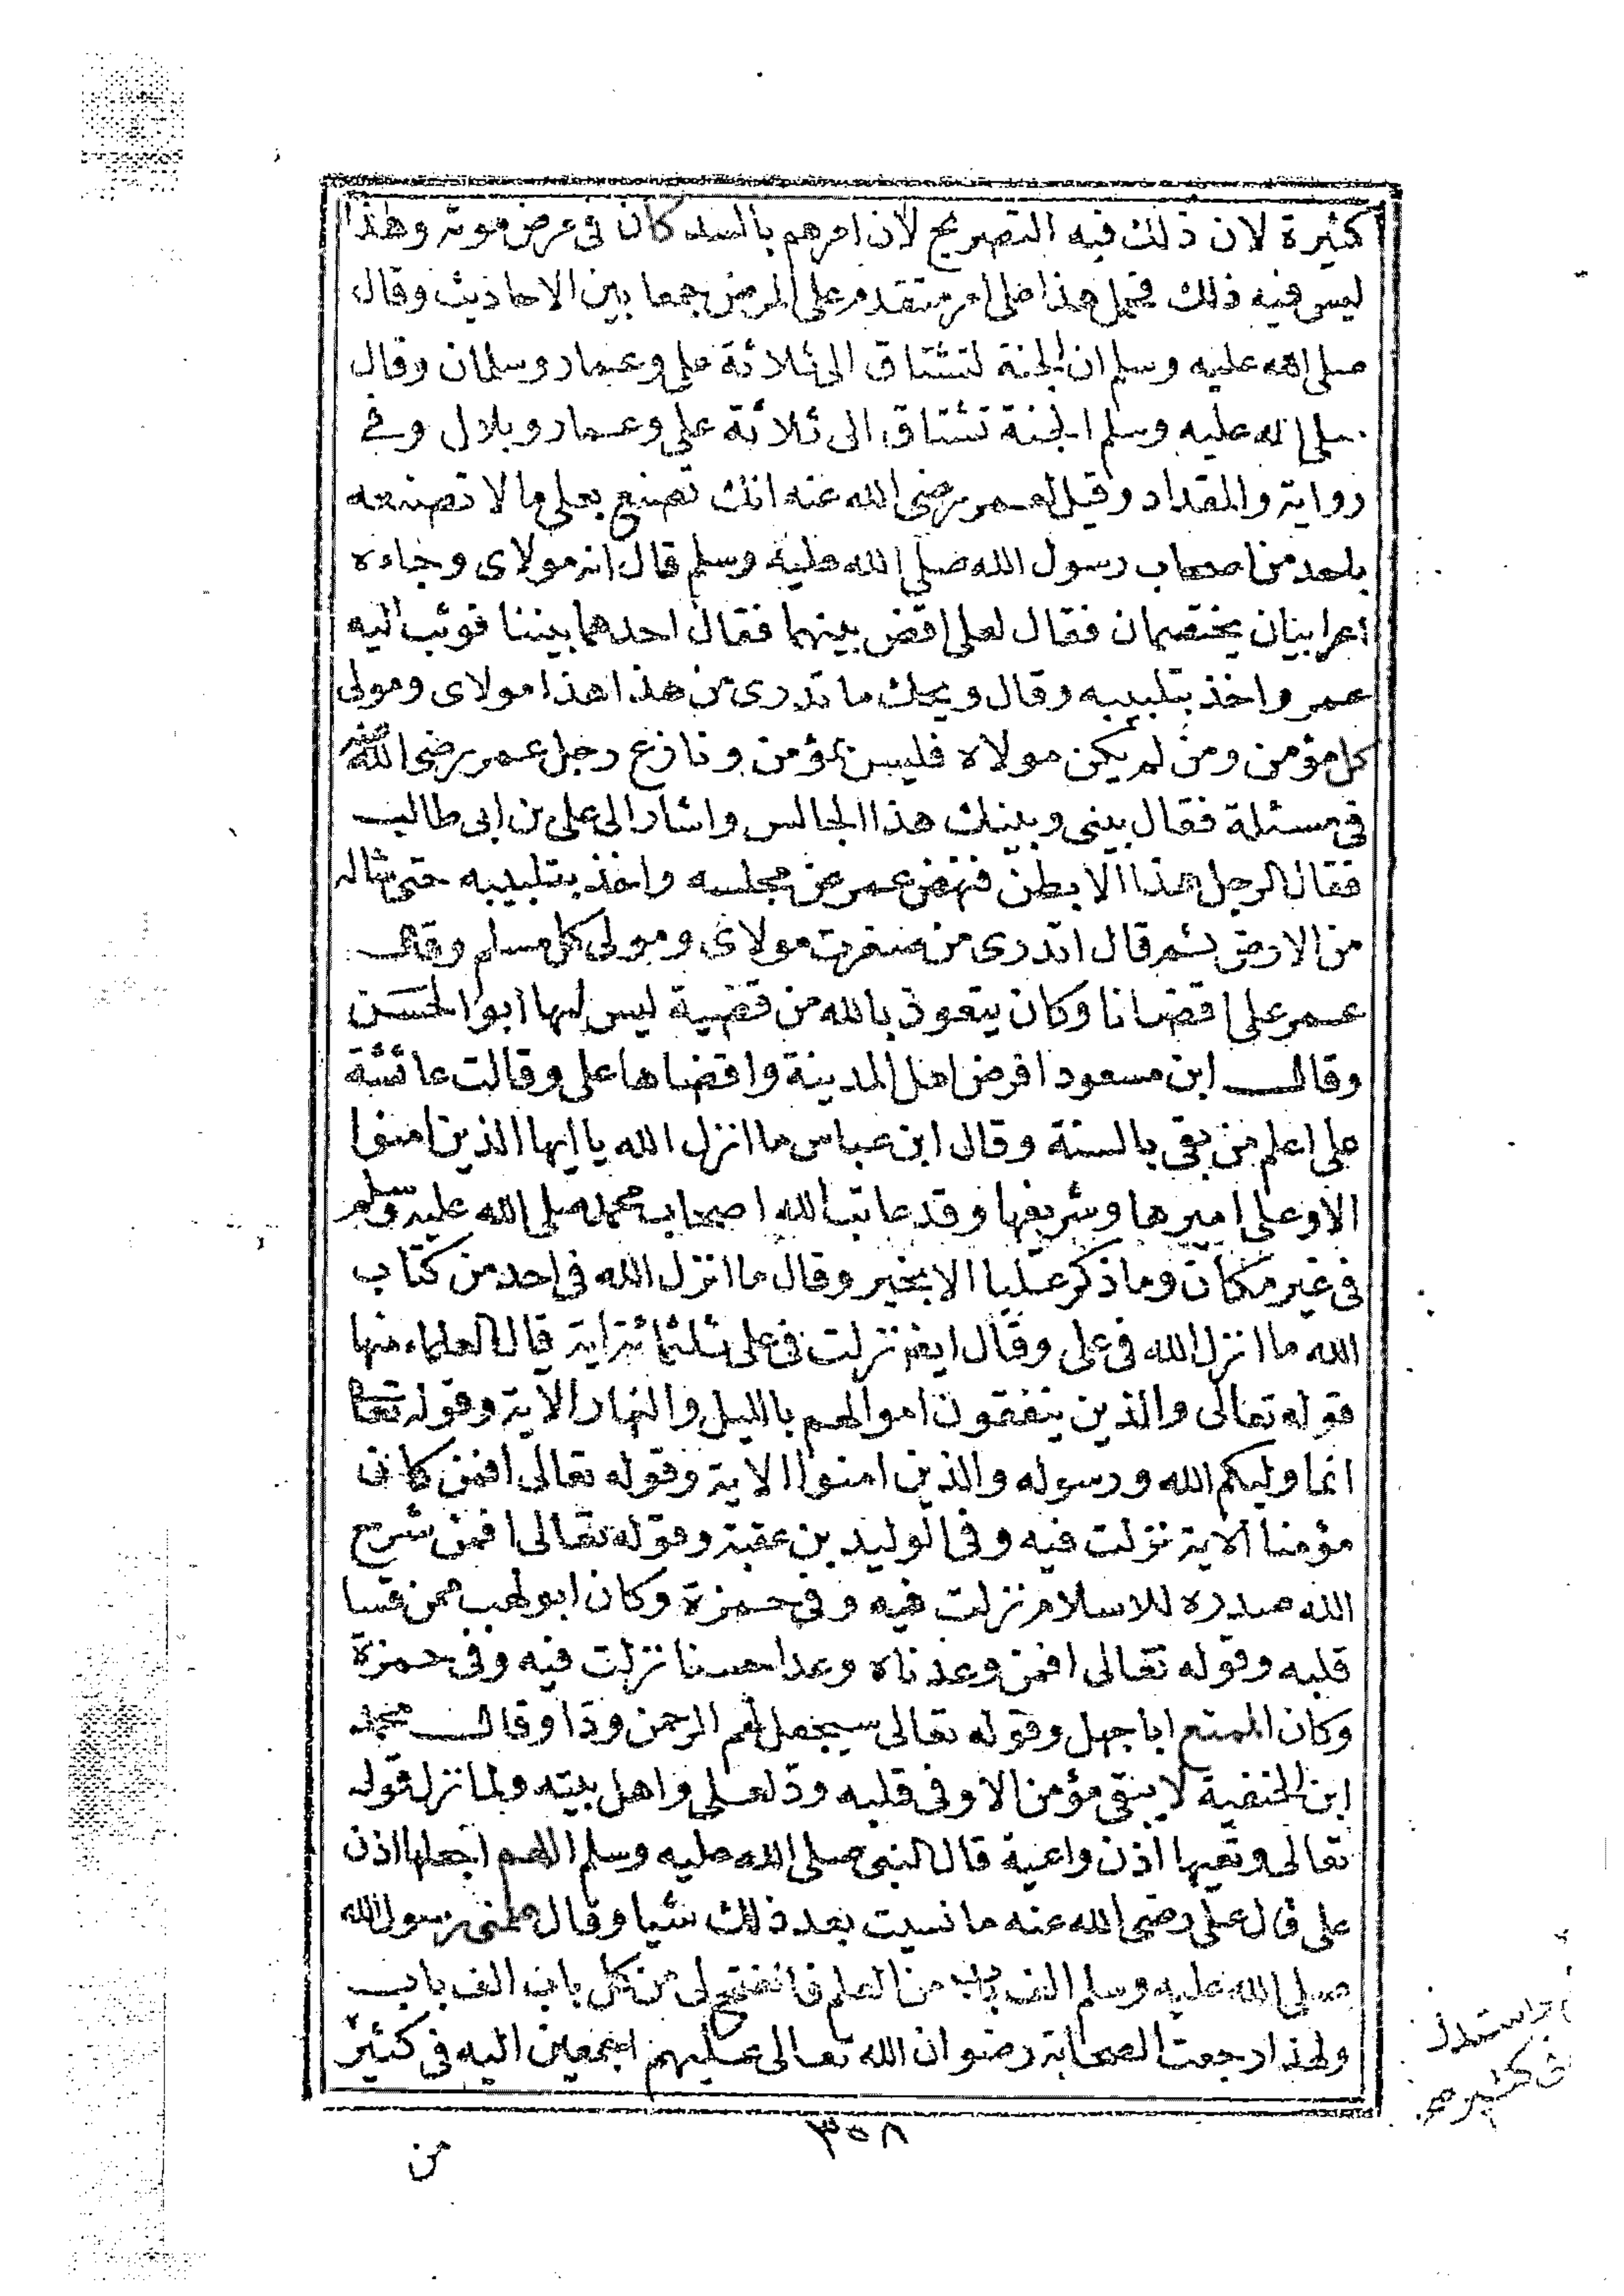 كثيرة لان ذلك فيه التصريح لان امرهم بالسد كان فى مرض موته وهذا
ليس فيه ذلك فحمل هذا على امر متقدم على المرض جمعا بين الاحاديث وقال
صلى الله عليه وسلم ان الجنة لتشتاق الى ثلاثة على وعمار وسلمان وقال
صلى الله عليه وسلم الجنة تشتاق الى ثلاثة على وعمار وبلال وفى
رواية والمقداد وقيل لعمر رضى الله عنه انك تصنع بعلى ما لا تصنعه
باحد من اصحاب رسول الله صلى الله عليه وسلم قال انه مولاى وجاءه
اعرابيان يختصمان فقال لعلى اقض بينهما فقال احدهما بيننا فوثب اليه
عمر واخذ بتلبيبه وقال ويحك ما تدرى من هذا هذا مولاى ومولى
كل مؤمن ومن لم يكن مولاه فليس بمؤمن ونازع رجل عمر رضى الله عنه
فى مسئلة فقال بينى وبينك هذا الجالس واشار الى على بن ابى طالب
فقال الرجل هذا الابطن فنهض عمر عن مجلسه واخذ بتلبيبه حتى شاله
من الارض ثم قال اتدرى من صغرت مولاى ومولى كل مسلم وقال
عمر على اقضانا وكان يتعوذ بالله من قضية ليس لها ابو الحسن
وقال ابن مسعود افرض اهل المدينة واقضاها على وقالت عائشة
على اعلم من بقى بالسنة وقال ابن عباس ما انزل الله يا ايها الذين امنوا
الا وعلى اميرها وشريفها وقد عاتب الله اصحاب محمد صلى الله عليه وسلم
فى غير مكان وما ذكر عليا الا بخير وقال ما انزل الله فى احد من كتاب
الله ما انزل الله فى على وقال ايضا نزلت فى على ثلثمائة اية قال العلماء منها
قوله تعالى والذين ينفقون اموالهم بالليل والنهار الآية وقوله تعالى
انما وليكم الله ورسوله والذين امنوا الاية وقوله تعالى افمن كان
مؤمنا الاية نزلت فيه وفى الوليد بن عقبة وقوله تعالى افمن شرح
الله صدره للاسلام نزلت فيه وفى حمزة وكان ابو لهب ممن قسا
قلبه وقوله تعالى افمن وعدناه وعدا حسنا نزلت فيه وفى حمزة
وكان الممتع ابا جهل وقوله تعالى سيجعل لهم الرحمن ودا وقال محمد
ابن الحنفية لا يبقى مؤمن الا وفى قلبه ود لعلى واهل بيته ولما نزل قوله
تعالى وتعيها اذن واعية قال النبى صلى الله عليه وسلم اللهم اجعلها اذن
على قال على رضى الله عنه ما نسيت بعد ذلك شيا وقال علمنى رسول الله
صلى الله عليه وسلم الف باب من العلم فانفتح لى من كل باب الف باب
ولهذا رجعت الصحابة رضوان الله تعالى عليهم اجمعين اليه فى كثير
٣٥٨
من